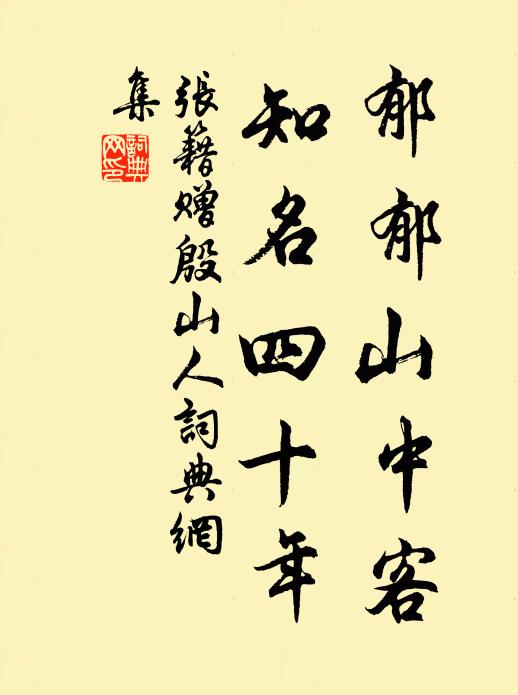 郁郁山中客
知名四十年
張籍贈殷山人詞典網
集
詞典
网印